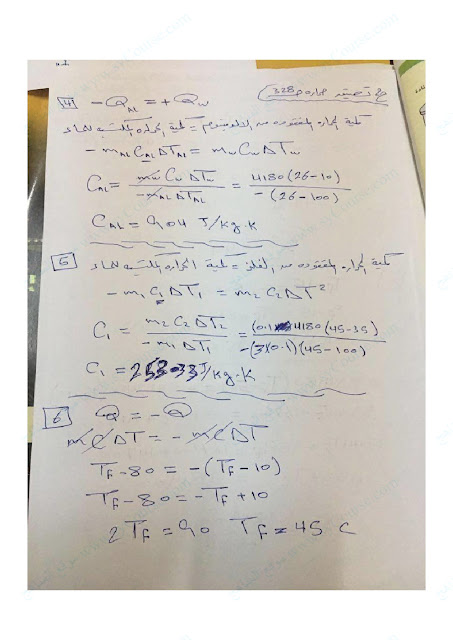 حل تصنيف حراره ص328
4 -Q_AL = +Q_w
كمية الحراره المفقوده من الالومنيوم = كمية الحراره المكتسبه للماء
-m_AL C_AL ΔT_AL = m_w C_w ΔT_w
C_AL = m_w C_w ΔT_w / -m_AL ΔT_AL = 4180(26-10) / -(26-100)
C_AL = 904 J/kg.K
5 كمية الحراره المفقوده من الفلز = كمية الحراره المكتسبه للماء
-m₁ C₁ ΔT₁ = m₂ C₂ ΔT²
C₁ = m₂ C₂ ΔT₂ / -m₁ ΔT₁ = (0.1) 4180 (45-35) / -(3)(0.1)(45-100)
C₁ = 253.33 J/kg.K
6 Q = -Q
mCΔT = -mCΔT
T_F - 80 = -(T_F - 10)
T_F - 80 = -T_F + 10
2T_F = 90 T_F = 45 C